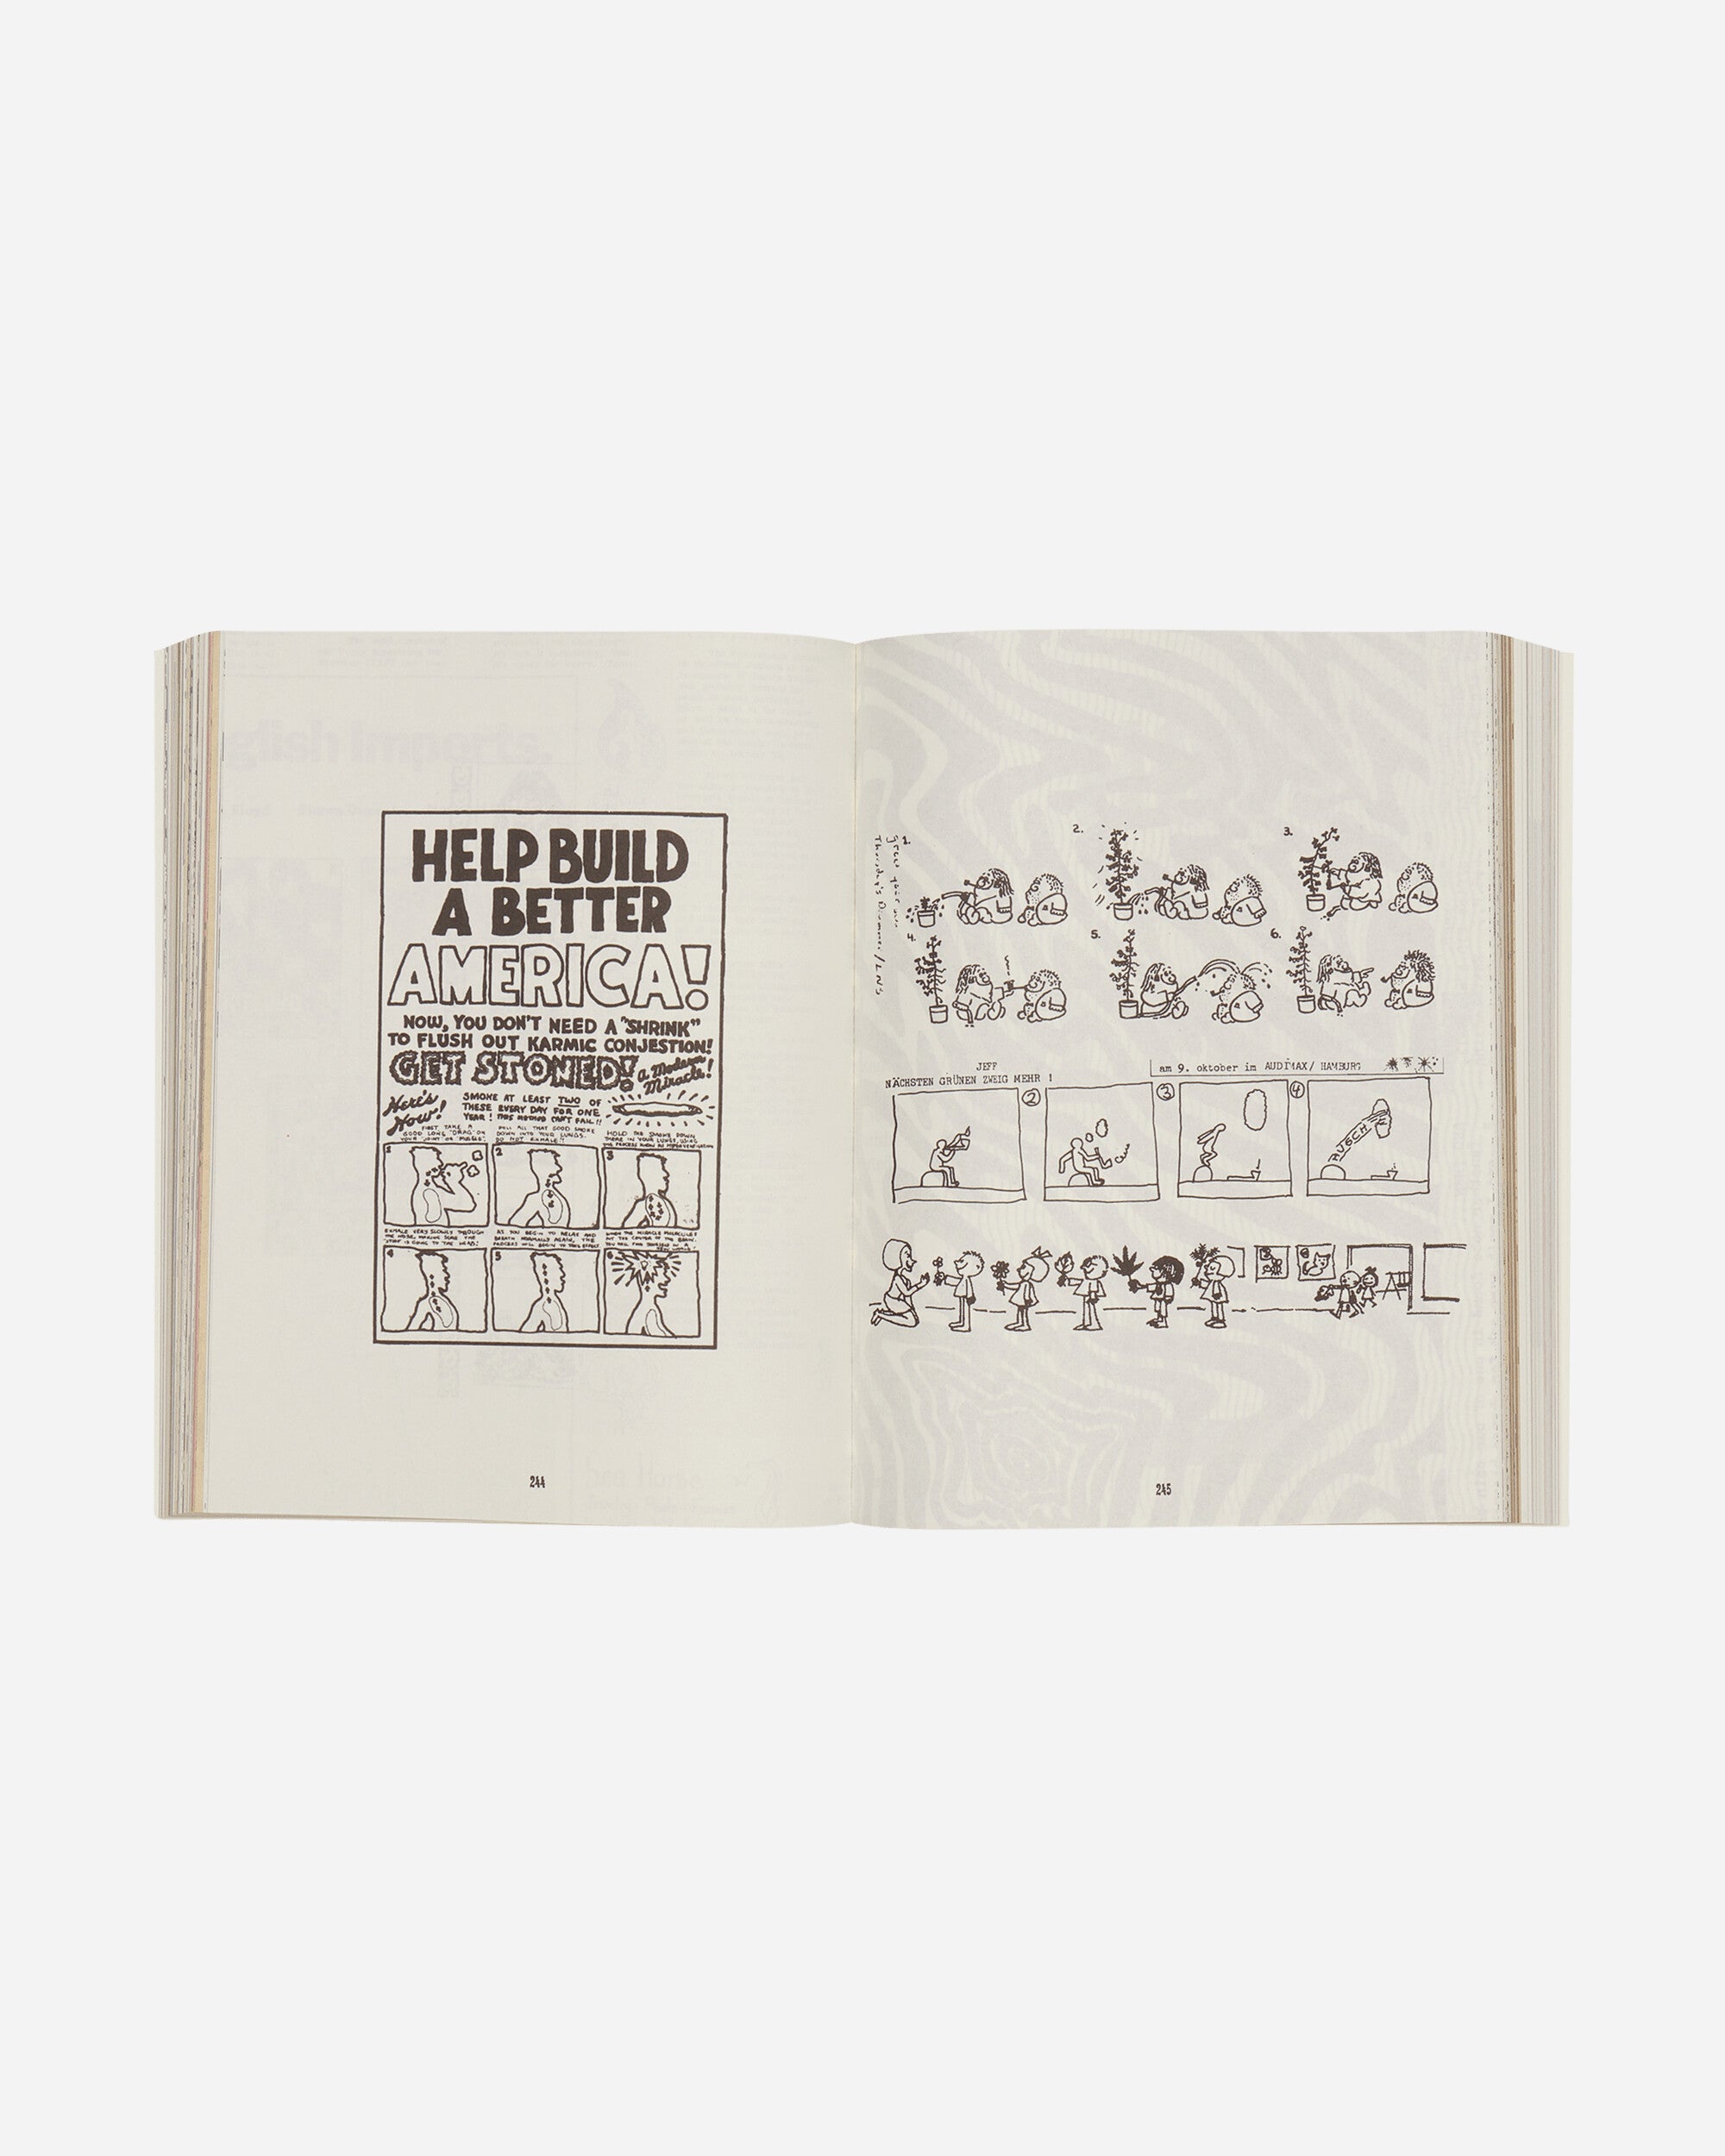 HELP BUILD
A BETTER
AMERICA!
NOW, YOU DON'T NEED A "SHRINK"
TO FLUSH OUT KARMIC CONJESTION!
GET STONED! a Modern Miracle!
Here's How!
SMOKE AT LEAST TWO OF
THESE EVERY DAY FOR ONE
YEAR! THIS METHOD CAN'T FAIL!!
FIRST TAKE A
GOOD LONG "DRAG" ON
YOUR "JOINT" OR
PULL ALL THAT GOOD SMOKE
DOWN INTO YOUR LUNGS.
DO NOT EXHALE!!
HOLD THE SMOKE DOWN
THERE IN YOUR LUNGS,
1
2
3
EXHALE VERY SLOWLY THROUGH
THE NOSE, MAKING SURE THE
"STUFF" IS GOING TO THE HEAD!
AS YOU BEGIN TO RELAX AND
BREATH NORMALLY AGAIN, THE
PROCESS WILL BEGIN TO TAKE EFFECT
WHEN THE MIRACLE MOLECULES
HIT THE CENTER OF THE BRAIN,
YOU WILL FIND YOURSELF IN A
4
5
6
244
grow your own
Thursday's Drummer/LNS
1.
2.
3.
4.
5.
6.
JEFF
NÄCHSTEN GRÜNEN ZWEIG MEHR !
am 9. oktober im AUDIMAX/ HAMBURG
2
3
4
RUSCH
245